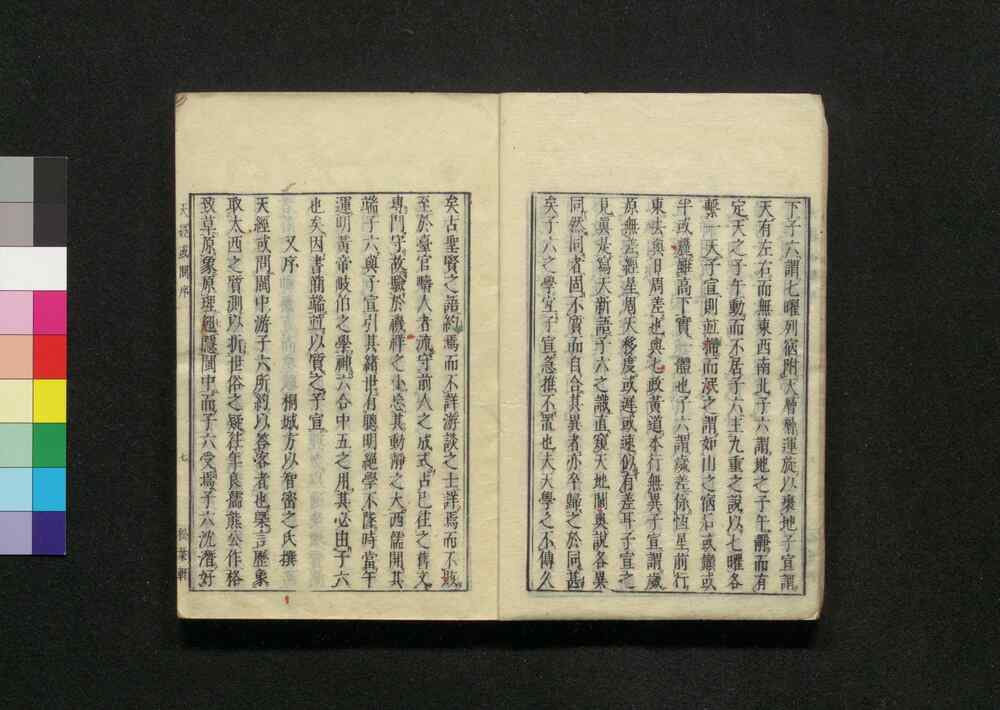 下子六謂七曜列宿附大層層運旋以裹地子宣謂
天有左右而無東西南北子六謂地之子午靜而有
定天之子午動而不居子六主九重之說以七曜各
繫一天子宣則並幬而泯之謂如山之宿石或鎮或
半或纏雖高下實一體也子六謂歲差係恆星前行
東法與日周差也與七政黃道本行無異子宣謂歲
原無差經星周天移度或遲或速似有差耳子宣之
見眞是寫天新語子六之識直窺天地閫奧說各異
同然同者固不質而自合其異者亦卒歸之於同甚
矣子六之學宜子宣急推不置也夫天學之不傳久
矣古聖賢之語約焉而不詳游談之士詳焉而不核
至於臺官疇人者流守前人之成式占已往之舊文
專門守故驗於禨祥之小忽其動靜之大西儒開其
端子六與子宣引其緒世有聰明絕學不墜時當午
運明黃帝岐伯之學神六合中五之用其必由于六
也矣因書簡端並以質之子宣
又序 桐城方以智密之氏撰
天經或問閩中游子六所約以答客者也槩言歷象
取太西之質測以折世俗之疑往年良孺熊公作格
致草原象原理
閩中而子六受焉子六沈潛好
天經或問序 七 松葉軒